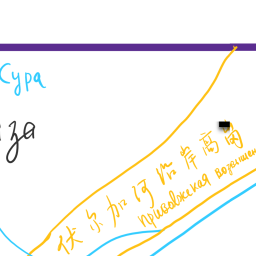 Сура
за
伏尔加河沿岸高岗
приволжская возвышен